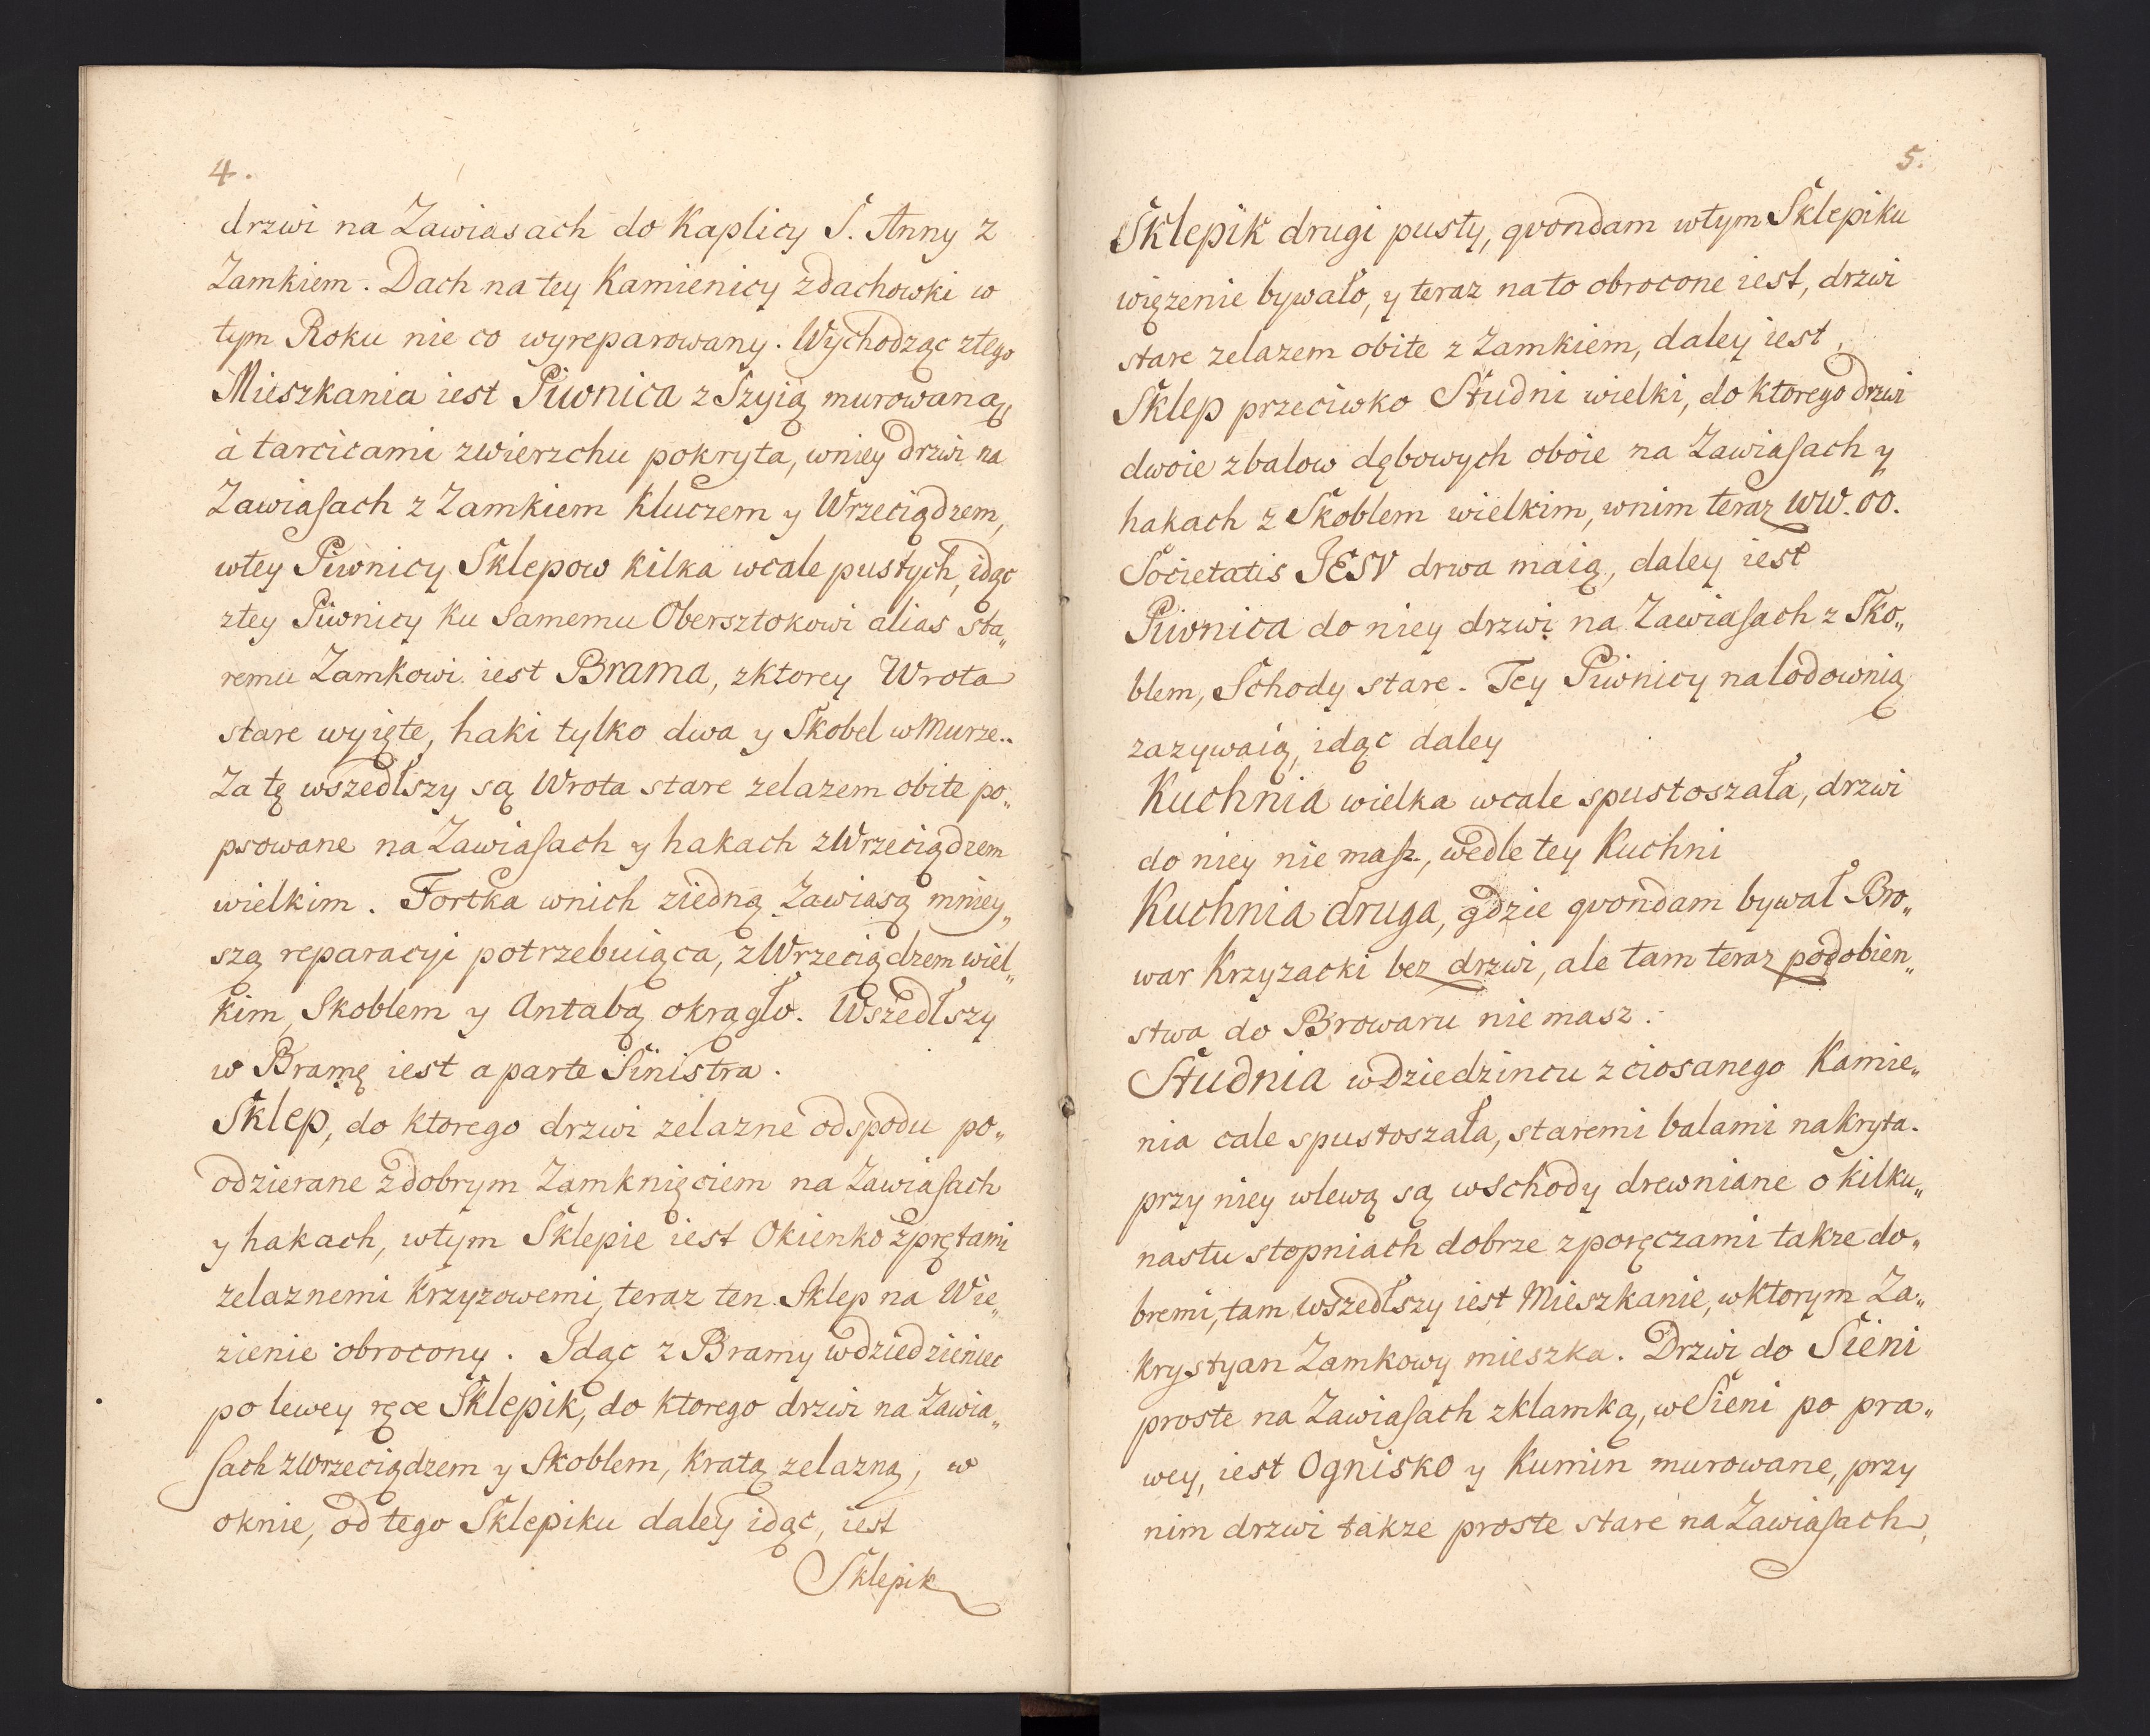 4.
drzwi na Zawiasach do Kaplicy S. Anny z
Zamkiem. Dach na tey Kamienicy zdachowki w
tym Roku nie co wyreparowany. Wychodząc ztego
Mieszkania iest Piwnica z Szyią murowaną
à tarcicami zwierzchu pokryta, wniey drzwi na
Zawiaſach z Zamkiem Kluczem y Wrzeciądzem,
wtey Piwnicy Sklepow kilka wcale pustych, idąc
ztey Piwnicy Ku Samemu Obersztokowi alias sta„
remu Zamkowi iest Brama, zktorey Wrota
stare wyięte, haki tylko dwa y Skobel w Murze..
Za tę wszedłszy są Wrota stare zelazem obite po„
psowane na Zawiaſach y hakach z Wrzeciądzem
wielkim. Fortka wnich ziedną Zawiasą mniey„
szą reparacyi potrzebuiąca, z Wrzeciądzem wiel„
kim, Skoblem y Antabą okrągło. Wszedłszy
w Bramę iest a parte Sinistra.
Sklep, do ktorego drzwi zelazne odspodu po„
odzierane zdobrym Zamknięciem na Zawiaſach
y hakach, wtym Sklepie iest Okienko zprętami
zelaznemi Krzyzowemi, teraz ten Sklep na Wię„
zienie obrocony. Idąc z Bramy wdziedzieniec
po lewey ręce Sklepik, do ktorego drzwi na Zawia„
ſach z Wrzeciądzem y Skoblem, Kratą zelazną, w
oknie, od tego Sklepiku daley idąc, iest
Sklepik
5.
Sklepik drugi pusty, qvondam wtym Sklepiku
więzenie bywało, y teraz na to obrocone iest, drzwi
stare zelazem obite z Zamkiem, daley iest,
Sklep przeciwko Studni wielki, do ktorego drzwi
dwoie zbalow dębowych oboie na Zawiaſach y
hakach z Skoblem wielkim, wnim teraz WW. OO.
Societatis JESV drwa maią, daley iest
Piwnica do niey drzwi na Zawiaſach z Sko„
blem, Schody stare. Tey Piwnicy na lodownią
zazywaią, idąc daley
Kuchnia wielka wcale spustoszała, drzwi
do niey nie maſz, wedle tey Kuchni
Kuchnia druga, gdzie qvondam bywał Bro„
war Krzyzacki bez drzwi, ale tam teraz podobien„
stwa do Browaru nie masz.
Studnia wDziedzincu z ciosanego Kamie„
nia cale spustoszała, staremi balami nakryta.
przy niey wlewą są wschody drewniane o kilku„
nastu stopniach dobrze zporęczami takze do„
bremi, tam wszedłszy iest Mieszkanie, wktorym Za„
krystyan Zamkowy mieszka. Drzwi do Sieni
proste na Zawiaſach zklamką, w Sieni po pra„
wey, iest Ognisko y Kumin murowane, przy
nim drzwi takze proste stare na Zawiaſach,